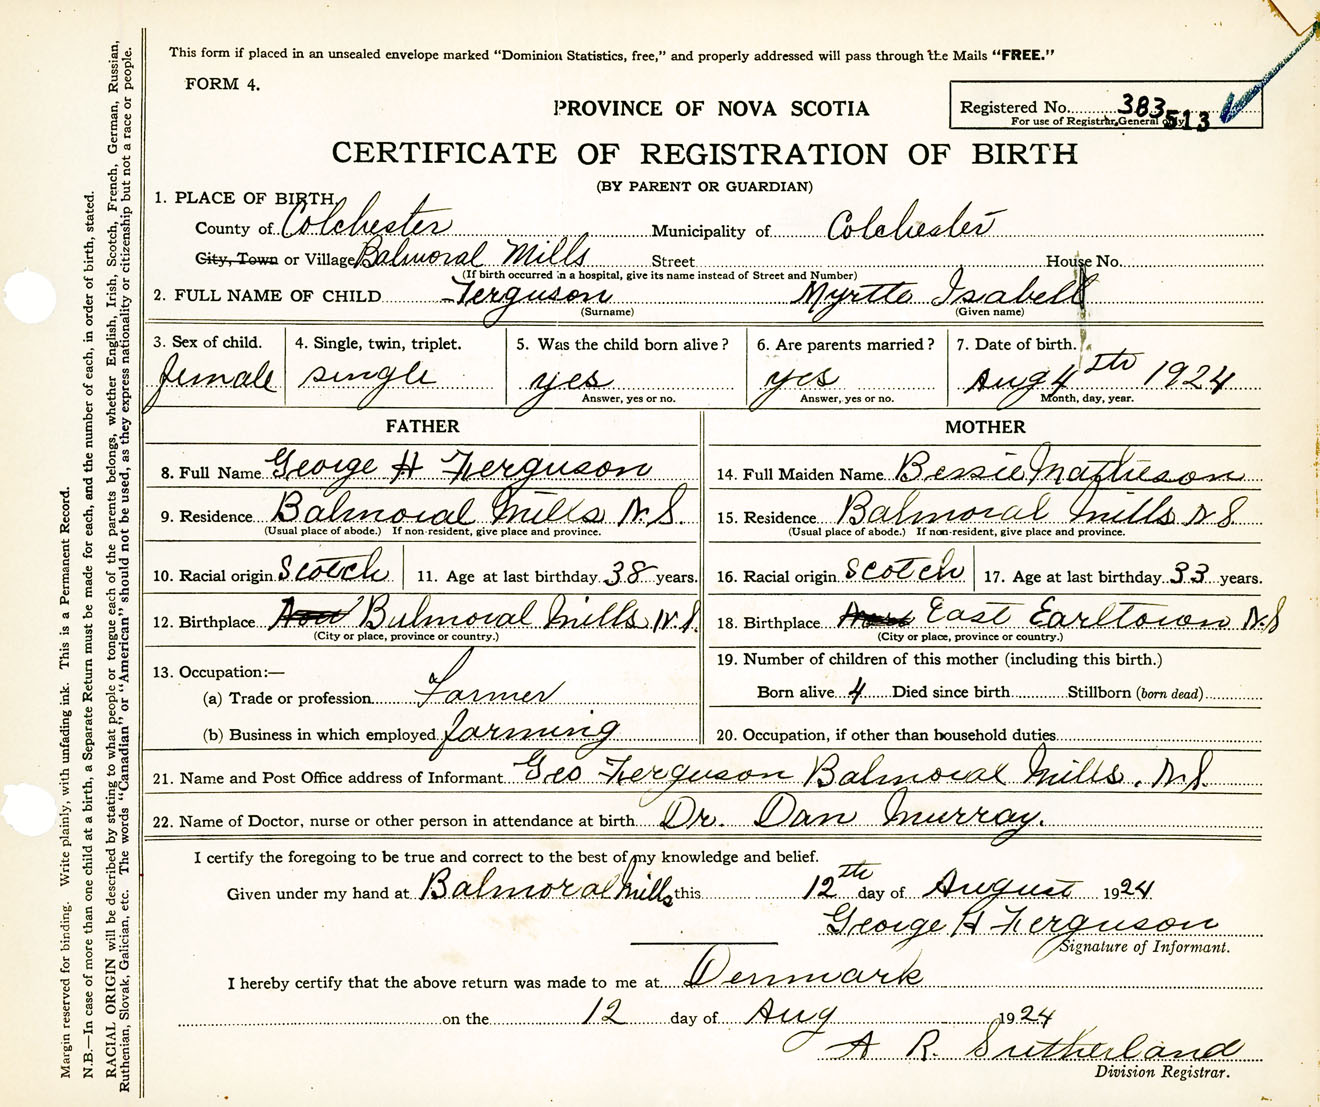 This form if placed in an unsealed envelope marked "Dominion Statistics, free," and properly addressed will pass through the Mails "FREE."
FORM 4.
PROVINCE OF NOVA SCOTIA
Registered No. 383513
For use of Registrar General only
CERTIFICATE OF REGISTRATION OF BIRTH
(BY PARENT OR GUARDIAN)
1. PLACE OF BIRTH.
County of Colchester Municipality of Colchester
City, Town or Village Balmoral Mills Street House No.
(If birth occurred in a hospital, give its name instead of Street and Number)
2. FULL NAME OF CHILD Ferguson Myrtle Isabell
(Surname) (Given name)
3. Sex of child. 4. Single, twin, triplet. 5. Was the child born alive? 6. Are parents married? 7. Date of birth.
female single yes yes Aug 4th 1924
Answer, yes or no. Answer, yes or no. Month, day, year.
FATHER MOTHER
8. Full Name George H Ferguson 14. Full Maiden Name Bessie Matheson
9. Residence Balmoral Mills N.S. 15. Residence Balmoral Mills N S
(Usual place of abode.) If non-resident, give place and province. (Usual place of abode.) If non-resident, give place and province.
10. Racial origin Scotch 11. Age at last birthday 38 years. 16. Racial origin Scotch 17. Age at last birthday 33 years.
12. Birthplace Bulmoral Mills N.S. 18. Birthplace East Earltown N.S
(City or place, province or country.) (City or place, province or country.)
13. Occupation:— 19. Number of children of this mother (including this birth.)
(a) Trade or profession Farmer Born alive 4 Died since birth Stillborn (born dead)
(b) Business in which employed farming 20. Occupation, if other than household duties
21. Name and Post Office address of Informant Geo Ferguson Balmoral Mills, N.S.
22. Name of Doctor, nurse or other person in attendance at birth Dr. Dan Murray.
I certify the foregoing to be true and correct to the best of my knowledge and belief.
Given under my hand at Balmoral Mills this 12th day of August 1924
George H Ferguson
Signature of Informant.
I hereby certify that the above return was made to me at Denmark
on the 12 day of Aug 1924
A R. Sutherland
Division Registrar.
Margin reserved for binding. Write plainly, with unfading ink. This is a Permanent Record.
N.B.—In case of more than one child at a birth, a Separate Return must be made for each, and the number of each, in order of birth, stated.
RACIAL ORIGIN will be described by stating to what people or tongue each of the parents belongs, whether English, Irish, Scotch, French, German, Russian,
Ruthenian, Slovak, Galician, etc. The words "Canadian" or "American" should not be used, as they express nationality or citizenship but not a race or people.